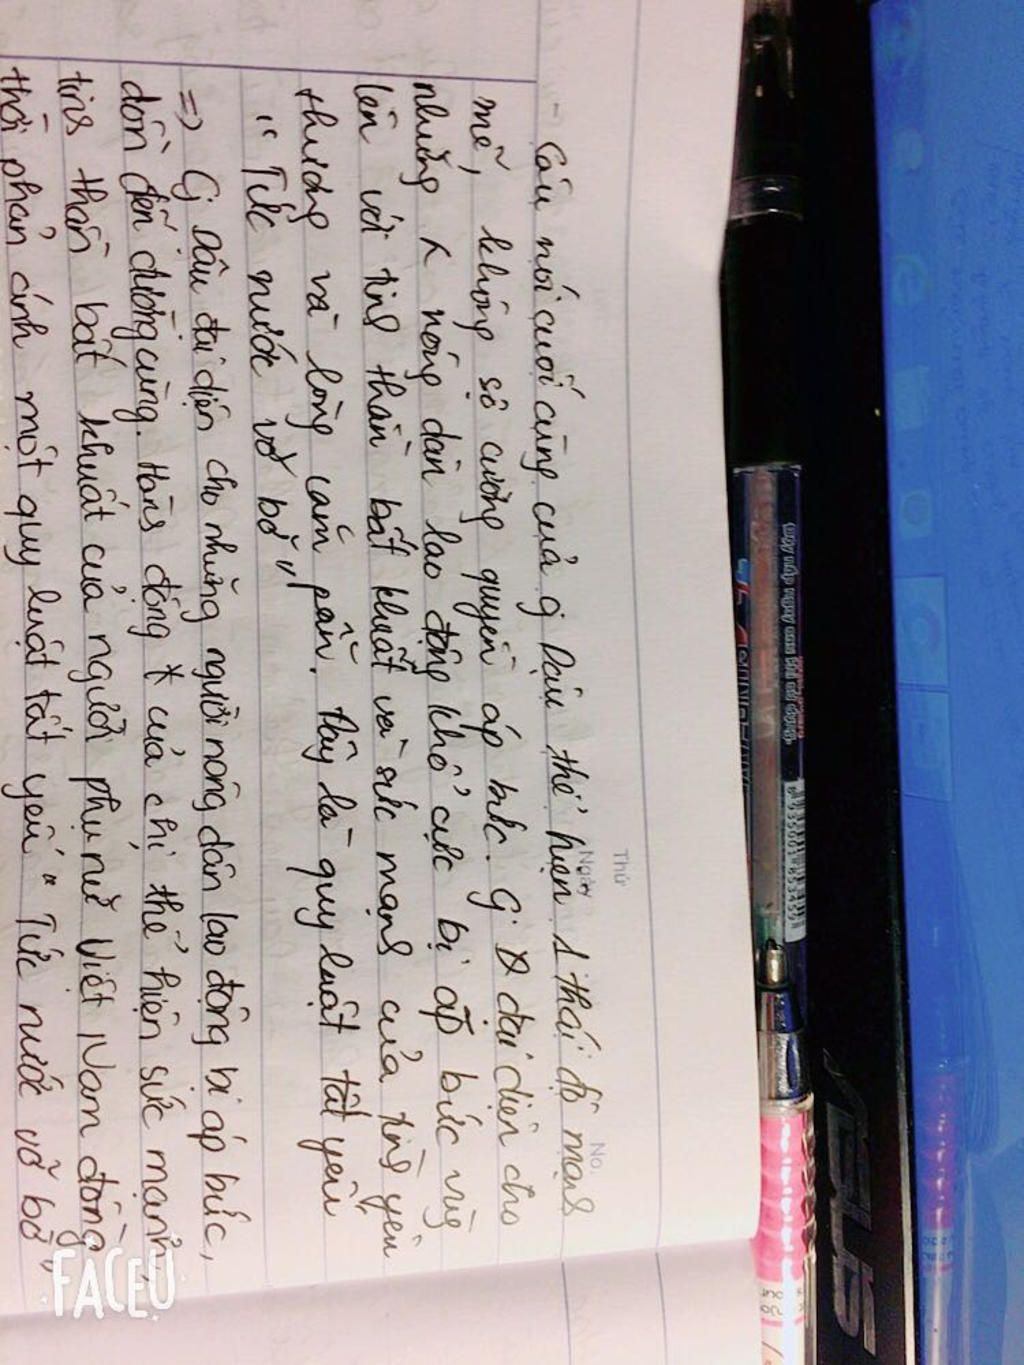 Thứ
Ngày
No.
- Câu nói cuối cùng của c Dậu thể hiện 1 thái độ mạnh
mẽ, không sợ cường quyền áp bức. C Dậu đại diện cho
những nông dân lao động khổ cực bị áp bức vùng
lên với tinh thần bất khuất và sức mạnh của tình yêu
thương và lòng căm phẫn. Đây là quy luật tất yếu
" Tức nước vỡ bờ "
=> Chị Dậu đại diện cho những người nông dân lao động bị áp bức,
dồn đến đường cùng. Hành động của chị thể hiện sức mạnh,
tinh thần bất khuất của người phụ nữ Việt Nam đồng
thời phản ánh một quy luật tất yếu " Tức nước vỡ bờ "
FACEU